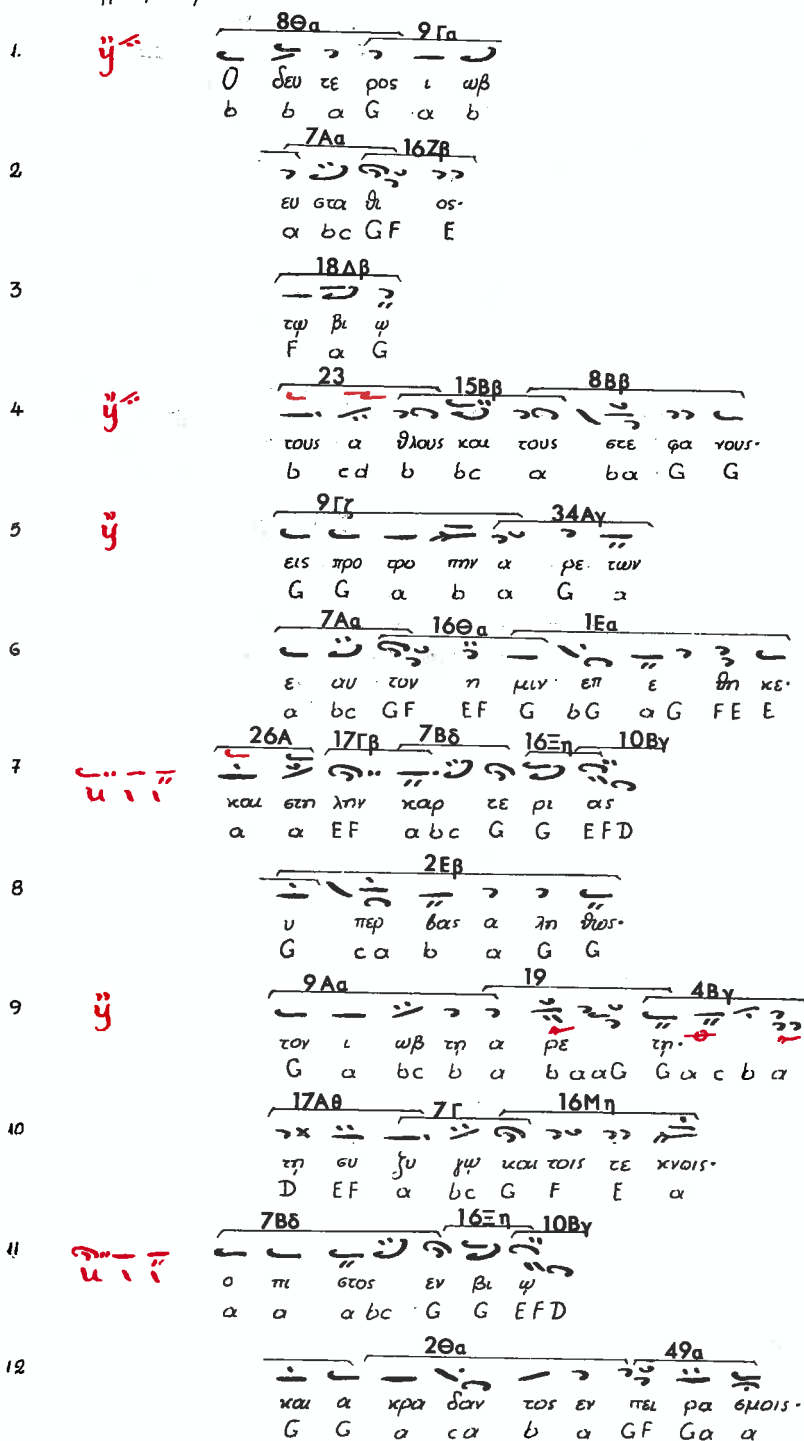 8Θα 9Γα
1. ÿ
Ο δευ τε ρος ι ωβ
b b a G a b
7Αα 16Ζβ
2
ευ στα θι ος·
a bc GF E
18Δβ
3
τῳ βι ῳ
F a G
23 15Ββ 8Ββ
4 ÿ
τους α θλους και τους στε φα νους·
b cd b bc a ba G G
9Γζ 34Αγ
5 ÿ
εις προ τρο πην α ρε των
G G a b a G a
7Αα 16Θα 1Εα
6
ε αυ τον η μιν επ ε θη κε·
a bc GF EF G bG aG FE E
26Α 17Γβ 7Βδ 16Ξη 10Βγ
7
και στη λην καρ τε ρι ας
a a EF abc G G EFD
2Εβ
8
υ περ βας α λη θως·
G ca b a G G
9Αα 19 4Βγ
9 ÿ
τον ι ωβ τη α ρε τῃ·
G a bc b a baaG Gacba
17Αθ 7Γ 16Μη
10
τῃ συ ζυ γῳ και τοις τε κνοις·
D EF a bc G F E a
7Βδ 16Ξη 10Βγ
11
ο πι στος εν βι ῳ
a a abc G G EFD
2Θα 49α
12
και α κρα δαν τος εν πει ρα σμοις·
G G a ca b a GF Ga a